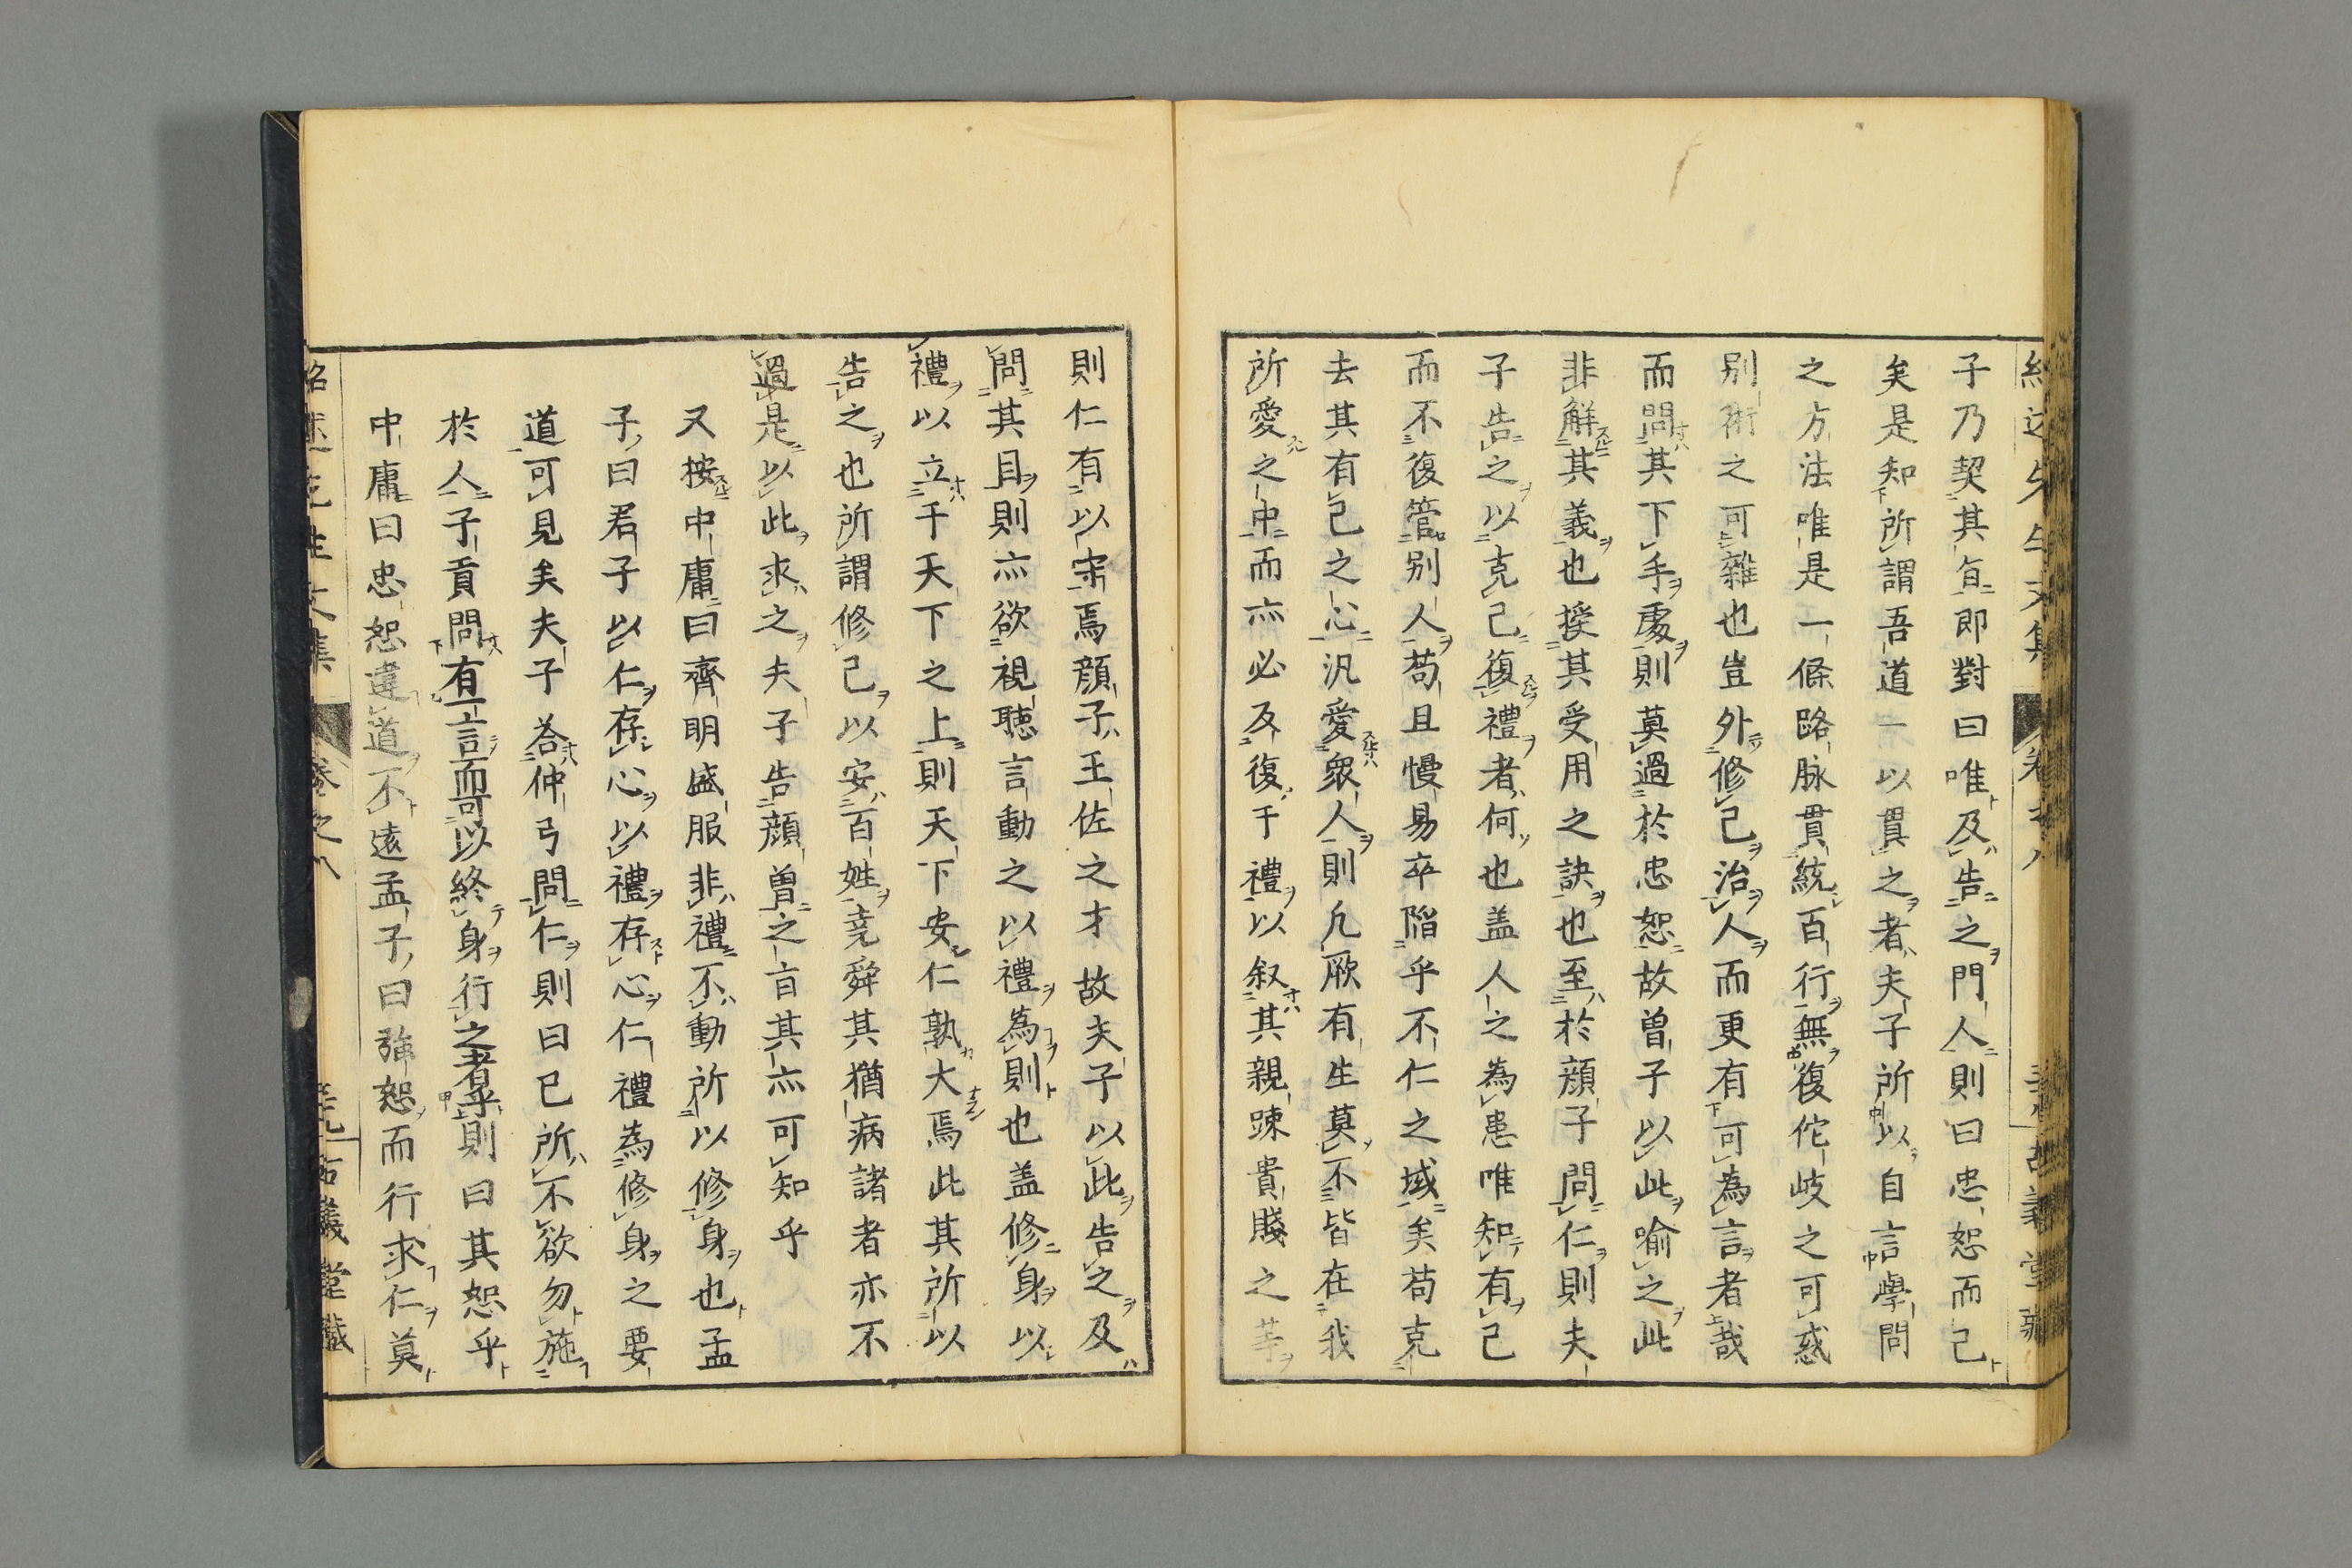 子乃契其旨即對曰唯及告之門人則曰忠恕而已
矣是知所謂吾道一以貫之者夫子所以自言學問
之方法唯是一條路脉貫統百行無復佗岐之可惑
別術之可雜也豈外修己治人而更有可為言者哉
而問其下手處則莫過於忠恕故曽子以此喻之此
非解其義也授其受用之訣也至於顔子問仁則夫
子告之以克己復禮者何也盖人之為患唯知有己
而不復管别人苟且慢易卒陷乎不仁之域矣苟克
去其有己之心汎愛衆人則凢厥有生莫不皆在我
所愛之中而亦必反復于禮以叙其親踈貴賤之等
則仁有以宗焉顔子王佐之才故夫子以此告之及
問其目則亦欲視聴言動之以禮為則也盖修身以
禮以立于天下之上則天下安仁孰大焉此其所以
告之也所謂修己以安百姓堯舜其猶病諸者亦不
過是以此求之夫子告顔曽之旨其亦可知乎
又按中庸曰齊明盛服非禮不動所以修身也孟
子曰君子以仁存心以禮存心仁禮為修身之要
道可見矣夫子荅仲弓問仁則曰己所不欲勿施
於人子貢問有一言而可以終身行之者乎則曰其恕乎
中庸曰忠恕違道不遠孟子曰強恕而行求仁莫
卷之八
古義堂藏